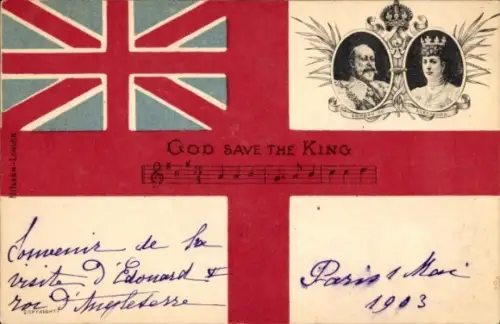 GOD SAVE THE KING
Souvenir de la
visite d'Edouard
roi d'Angleterre
COPYRIGHT
Paris 1 Mai
1903